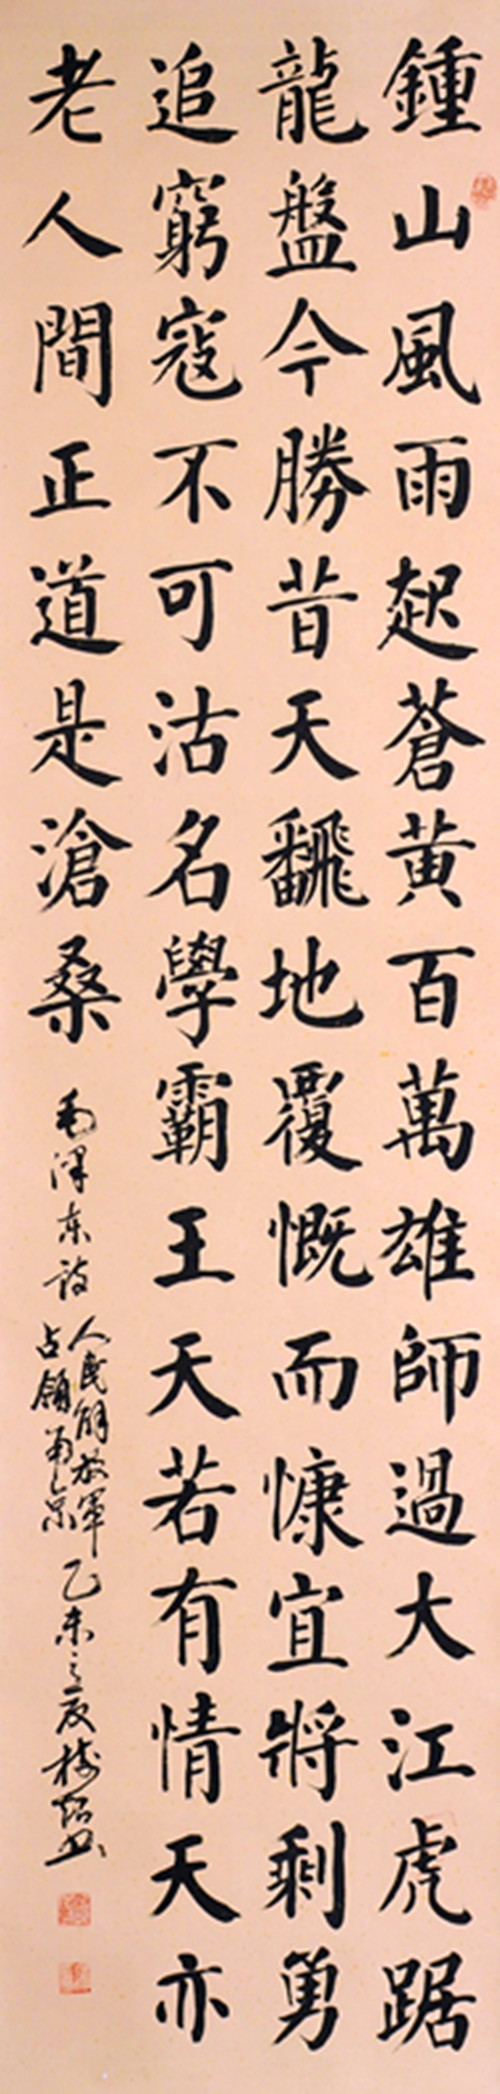 鍾山風雨起蒼黄百萬雄師過大江虎踞
龍盤今勝昔天飜地覆慨而慷宜將剩勇
追窮寇不可沽名學霸王天若有情天亦
老人間正道是滄桑
毛泽东诗
人民解放軍
占領南京
乙未之夏